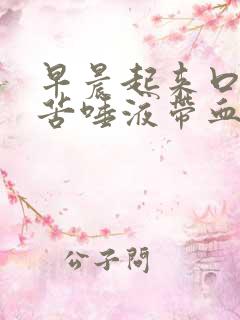 早晨起来口
苦唾液带血
公子問